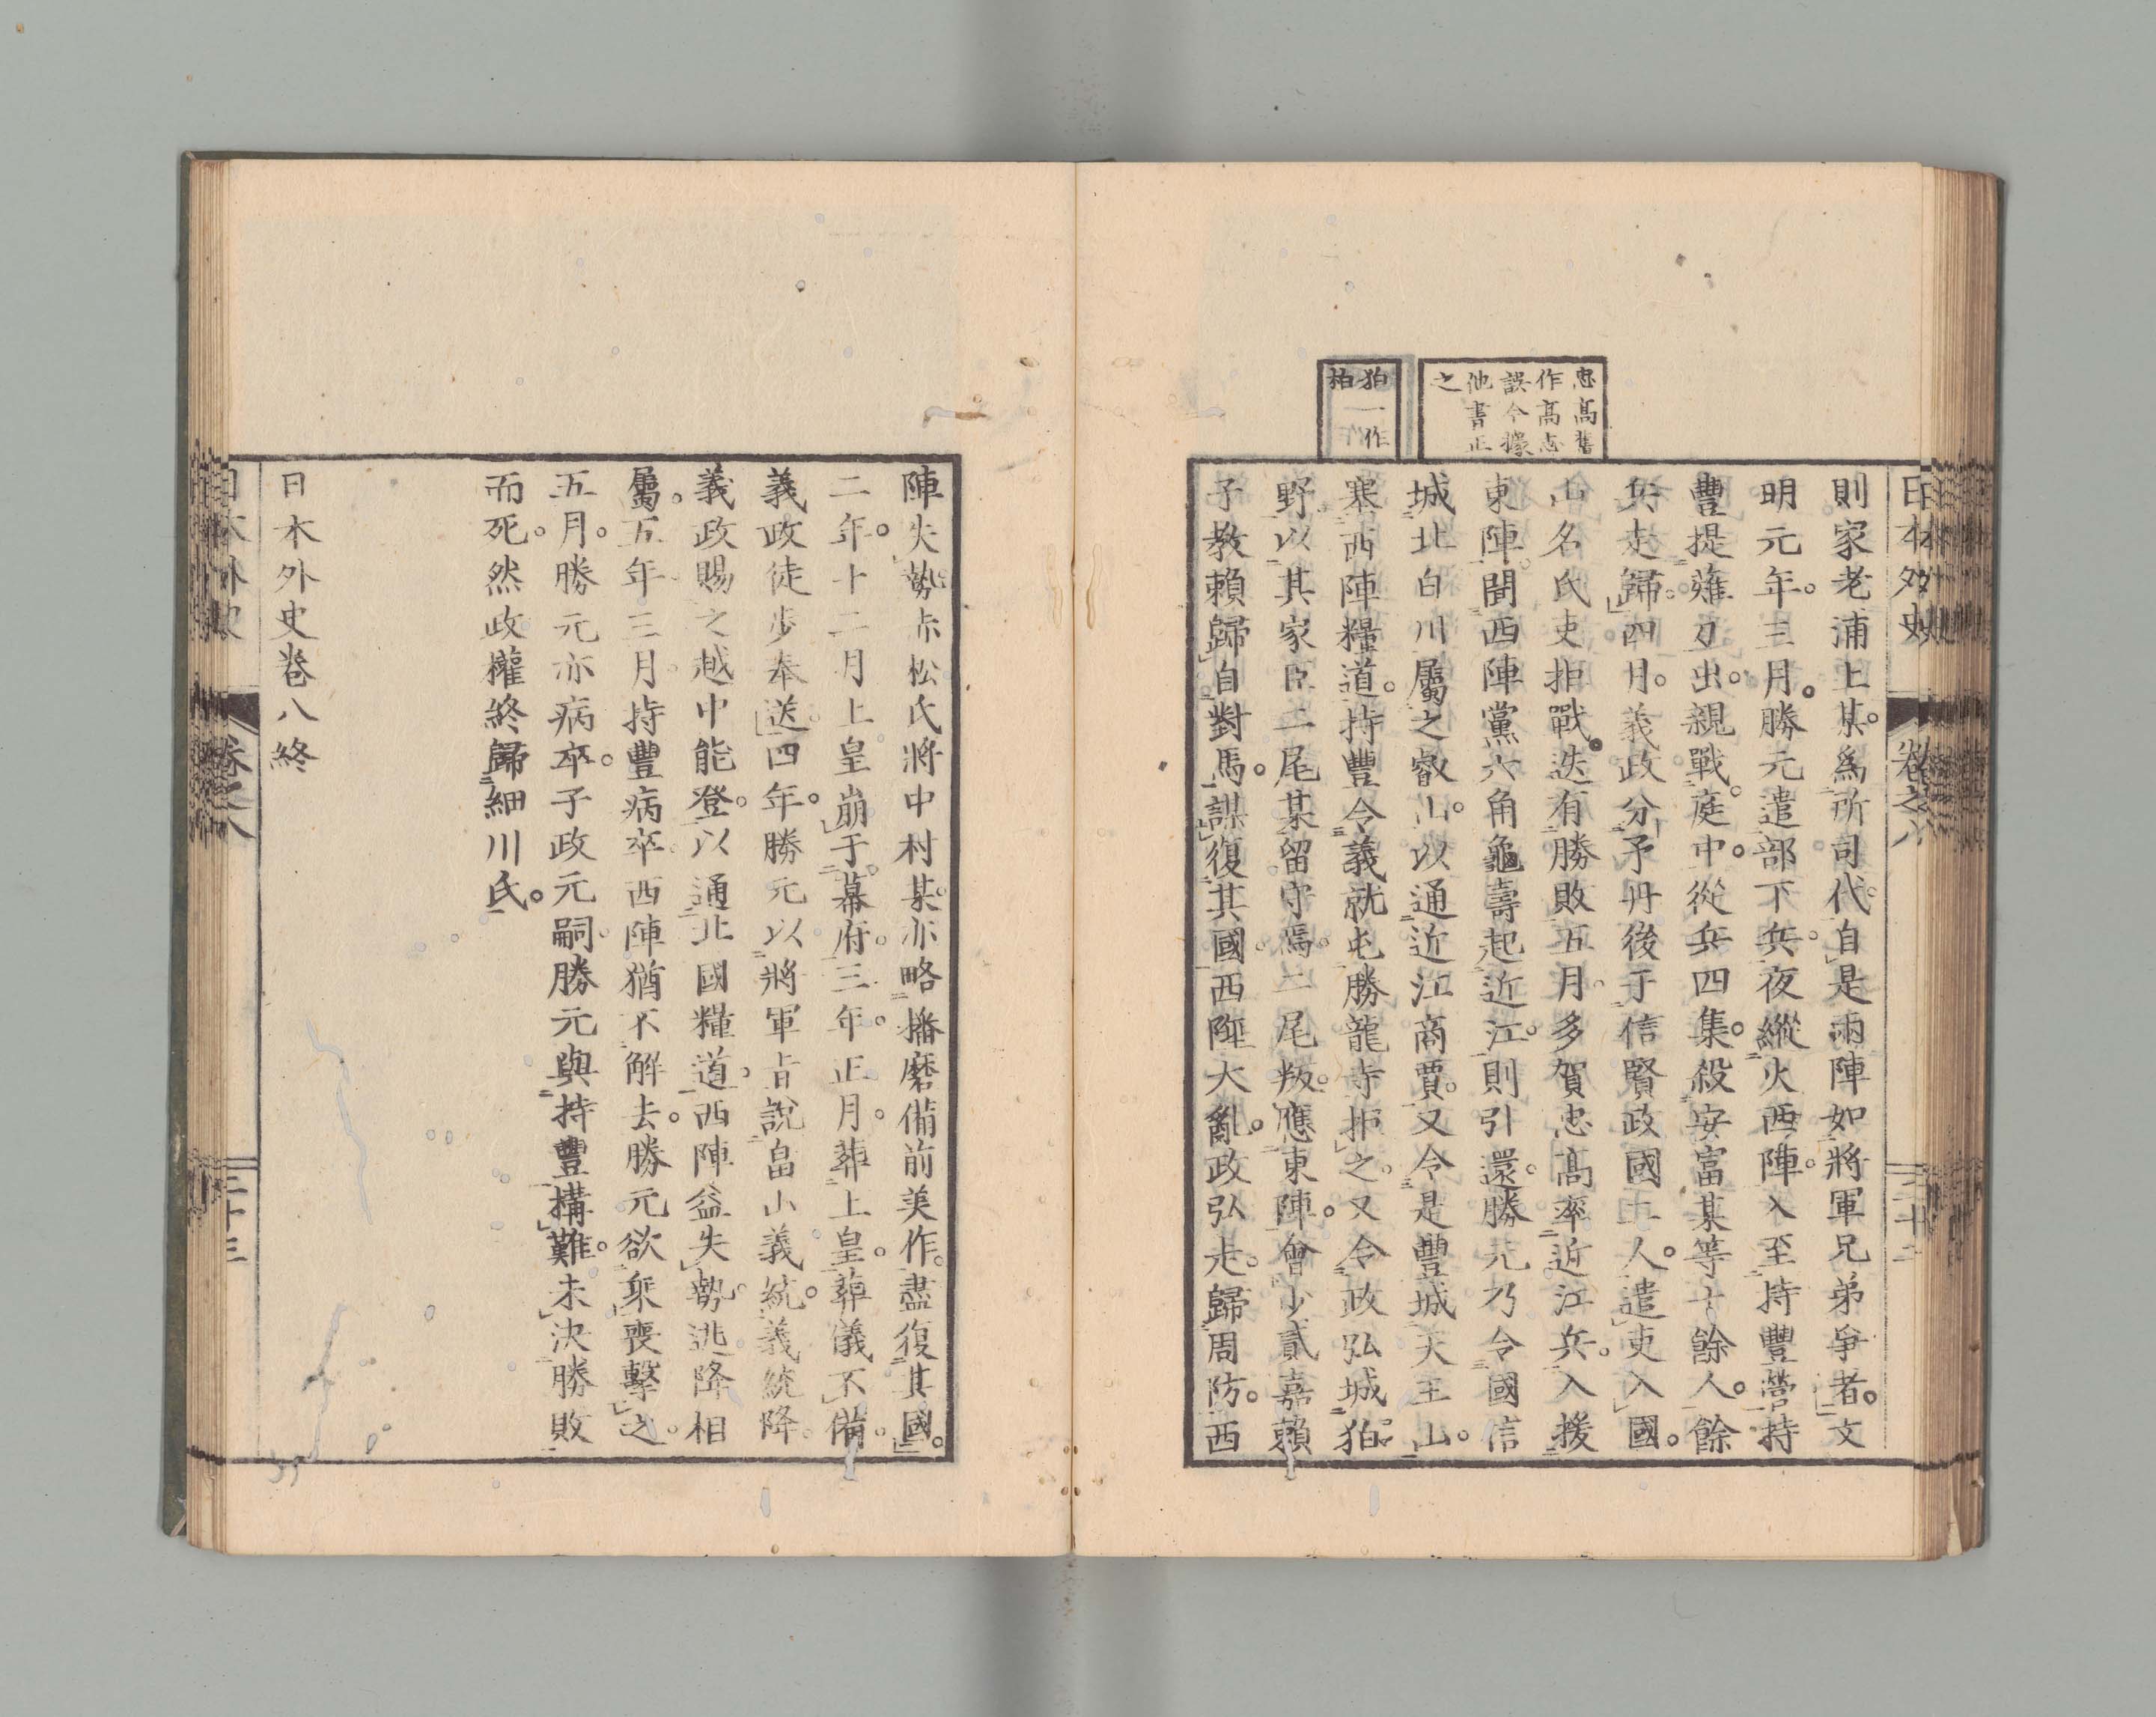 日本外史
卷之八
三十二
忠高舊
作高忠
誤今據
他書正
之
狛一作
柏
則家老浦上某爲所司代。自是兩陣如將軍兄弟爭者。文
明元年。三月。勝元遣部下兵。夜縱火西陣。入至持豐營。持
豐提薙刀出。親戰庭中。從兵四集。殺安富某等十餘人。餘
兵走歸。四月。義政分予丹後于信賢政國二人。遣吏入國。
山名氏吏拒戰。迭有勝敗。五月。多賀忠高率近江兵。入援
東陣。聞西陣黨六角龜壽起近江。則引還。勝元乃令國信
城北白川屬之叡山。以通近江商賈。又令是豐城天王山。
塞西陣糧道。持豐令義就屯勝龍寺拒之。又令政弘城狛
野。以其家臣二尾某留守焉。二尾叛。應東陣。會少貳嘉賴
子教賴歸自對馬。謀復其國。西陣大亂。政弘走歸周防。西
陣失勢。赤松氏將中村某。亦略播磨備前美作。盡復其國。
二年。十二月上皇崩于幕府。三年。正月。葬上皇。葬儀不備。
義政徒步奉送。四年。勝元以將軍旨說畠山義統。義統降。
義政賜之越中能登。以通北國糧道。西陣益失勢。逃降相
屬。五年三月持豐病卒。西陣猶不解去。勝元欲乘喪擊之。
五月。勝元亦病卒。子政元嗣。勝元與持豐構難。未決勝敗
而死。然政權終歸細川氏。
日本外史卷八終
日本外史
卷之八
三十三